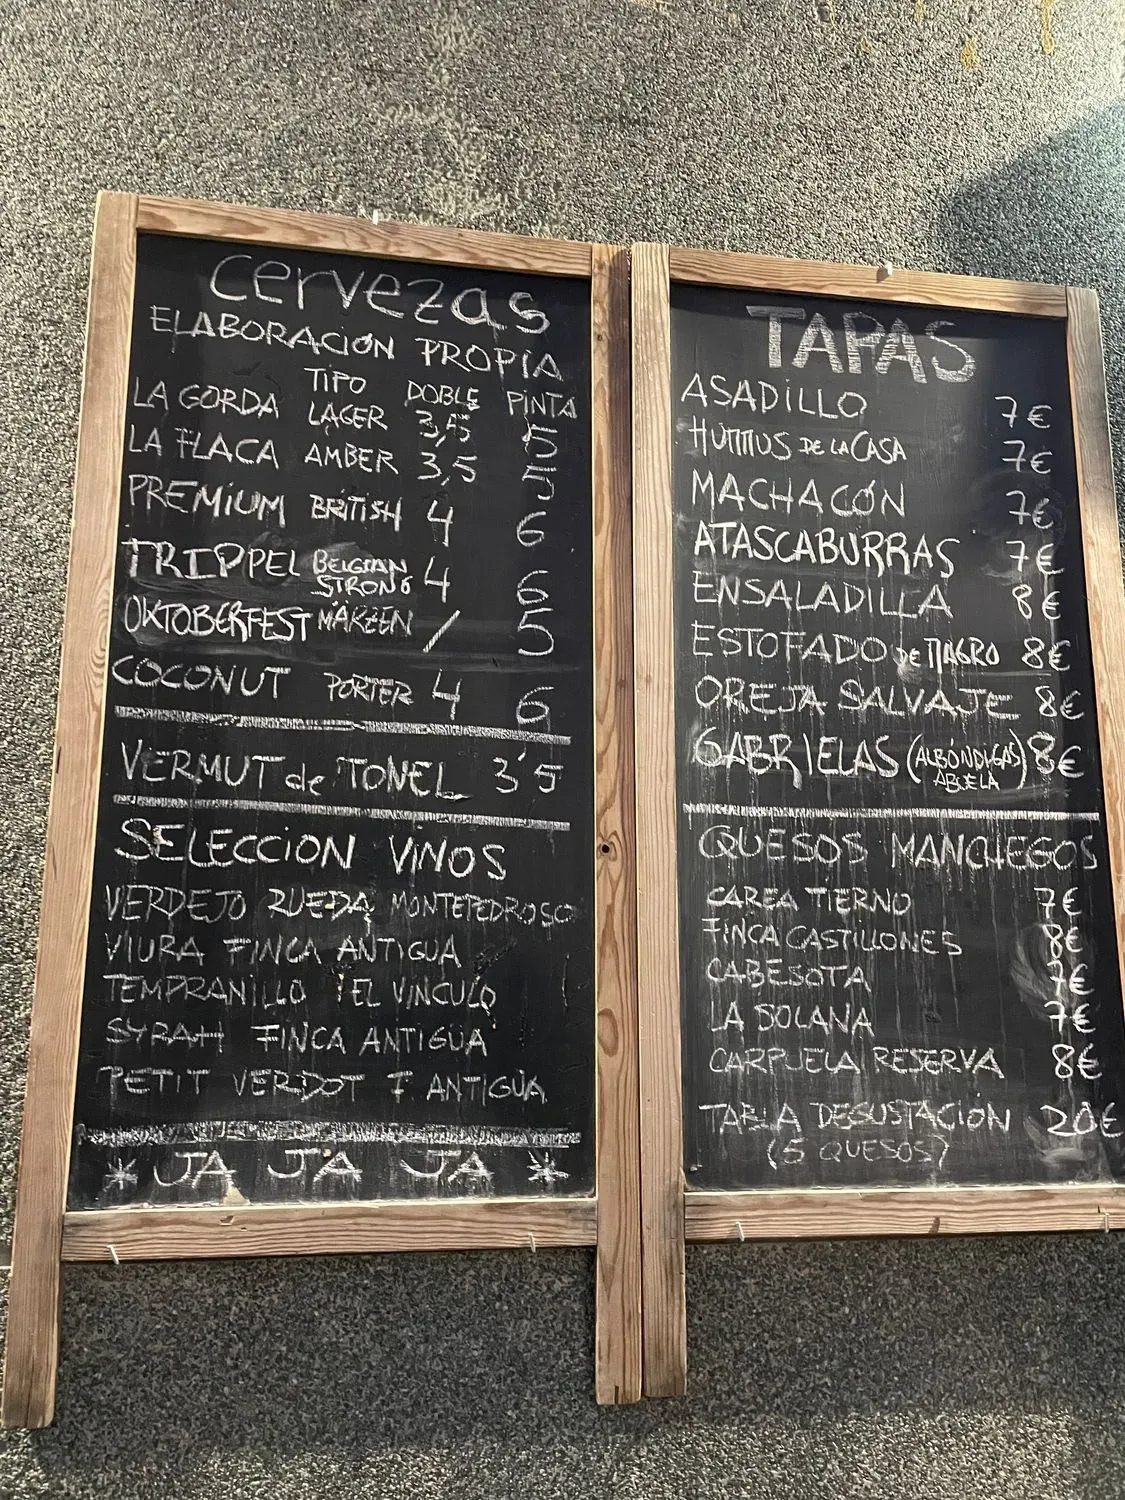 cervezas
ELABORACIÓN PROPIA
TIPO DOBLE PINTA
LA GORDA LAGER 3,5 5
LA FLACA AMBER 3,5 5
PREMIUM BRITISH 4 6
TRIPPEL BELGIAN STRONG 4 6
OKTOBERFEST MÄRZEN / 5
COCONUT PORTER 4 6
VERMUT de TONEL 3'5
SELECCION VINOS
VERDEJO RUEDA MONTEPEDROSO
VIURA FINCA ANTIGUA
TEMPRANILLO EL VINCULO
SYRAH FINCA ANTIGUA
PETIT VERDOT F. ANTIGUA
* JA JA JA *
TAPAS
ASADILLO 7€
HUMMUS DE LA CASA 7€
MACHACÓN 7€
ATASCABURRAS 7€
ENSALADILLA 8€
ESTOFADO DE MAGRO 8€
OREJA SALVAJE 8€
GABRIELAS (ALBÓNDIGAS ABUELA) 8€
QUESOS MANCHEGOS
CAREA TIERNO 7€
FINCA CASTILLONES 8€
CABESOTA 7€
LA SOLANA 7€
CARPUELA RESERVA 8€
TABLA DEGUSTACIÓN 20€
(5 QUESOS)